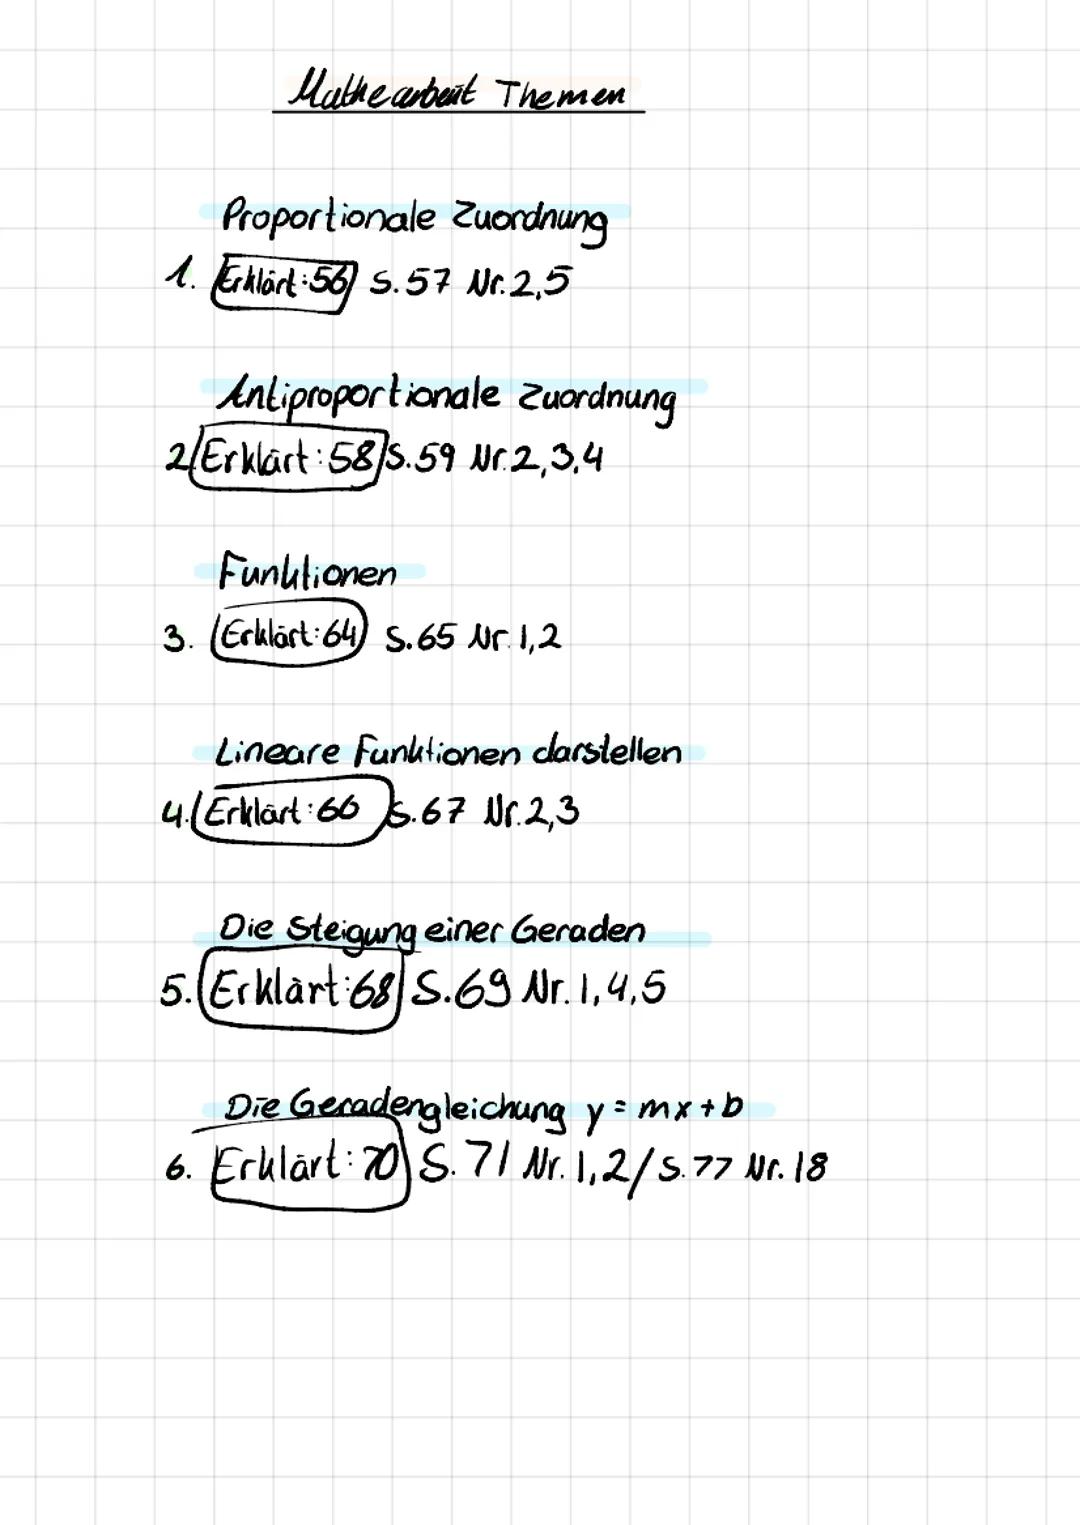 Mathearbeit Themen
Proportionale Zuordnung
1. Erklärt:56 S.57 Nr.2,5
Antiproportionale Zuordnung
2. Erklärt:58 S.59 Nr.2,3,4
Funktionen
3. Erklärt:64 S.65 Nr.1,2
Lineare Funktionen darstellen
4. Erklärt:66 S.67 Nr.2,3
Die Steigung einer Geraden
5. Erklärt:68 S.69 Nr.1,4,5
Die Geradengleichung y=mx+b
6. Erklärt:70 S.71 Nr.1,2/S.77 Nr.18